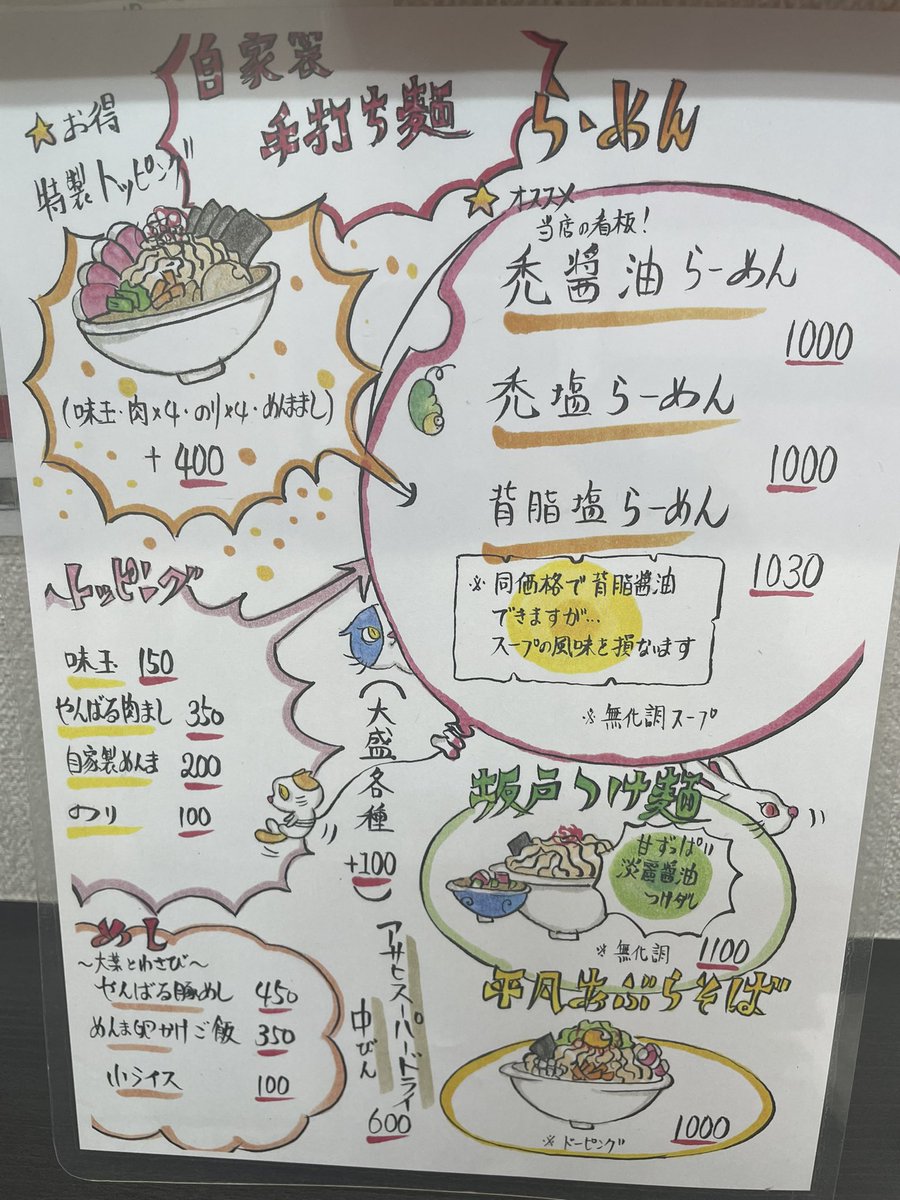 自家製
手打ち麺
らーめん
★お得
特製トッピング
(味玉・肉×4・のり×4・めんままし)
+400
★オススメ
当店の看板!
禿醤油らーめん
1000
禿塩らーめん
1000
背脂塩らーめん
1030
※同価格で背脂醤油
できますが…
スープの風味を損ないます
※無化調スープ
トッピング
味玉 150
やんばる肉まし 350
自家製めんま 200
のり 100
(大盛各種
+100)
めし
~大葉とわさび~
やんばる豚めし 450
めんま卵かけご飯 350
小ライス 100
アサヒスーパードライ
中びん
600
坂戸つけ麺
甘ずっぱい
淡麗醤油
つけダレ
※無化調 1100
平月あぶらそば
1000
※ドーピング